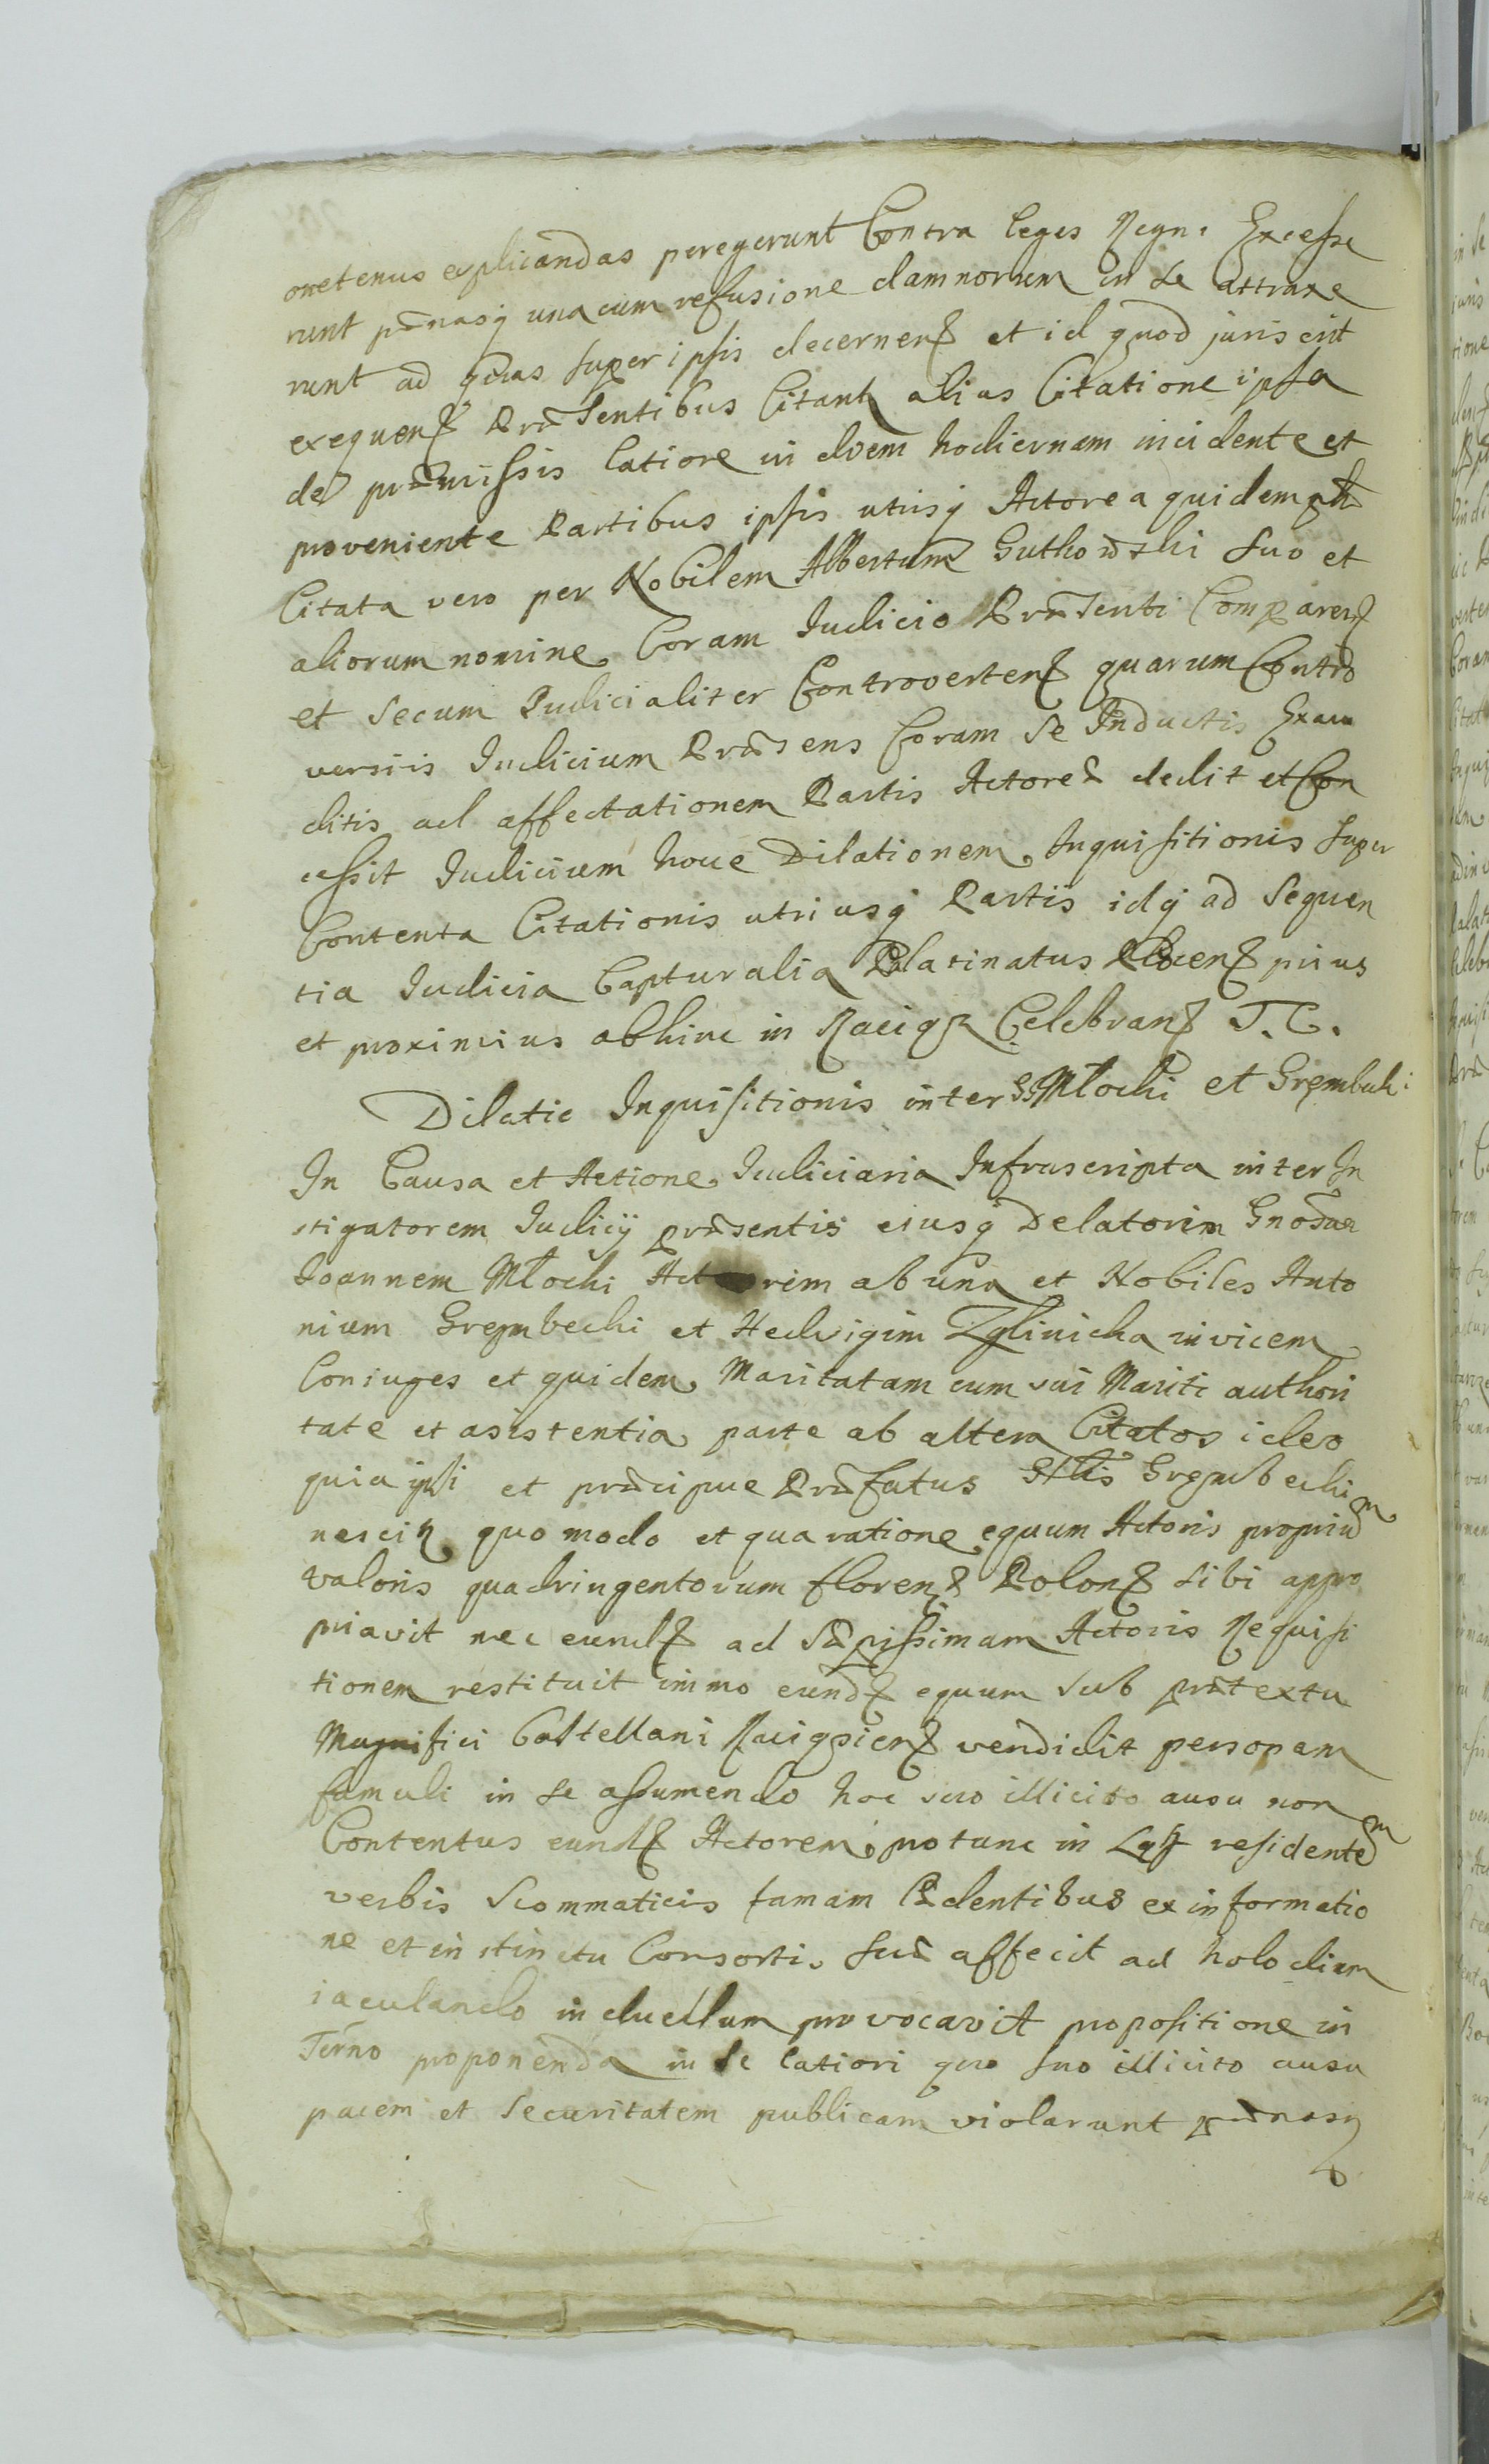 onetenus explicandas peregerunt Contra leges Regni Excesse
runt pœnasq unacum refusione damnorum in se attraxe
runt ad quas super ipsis decernen et id quod juris erit
exequen Præsentibus Citant alias Citatione ipsa
de præmissis latiore in diem hodiernam incidente et
proveniente Partibus ipsis utrisq Actorea quidem
Citata vero per Nobilem Albertum Guthowski suo et
aliorum nomine Coram Iudicio Præsenti Comparen
et secum Iudicialiter Controverten quarum Contro
versiis Iudicium Præsens Coram se Inductis Exau
ditis ad affectationem Partis Actoreæ dedit et Con
cessit Iudicium hoce Dilationem Inquisitionis super
Contenta Citationis utriusq Partis idq ad sequen
tia Iudicia Capturalia Palatinatus Plocen prius
et proximius abhinc in Raciąz Celebran T. C.
Dilatio Inquisitionis inter GG Młocki et Grembecki
In Causa et Actione Iudiciaria Infrascripta inter In
stigatorem Iudicij præsentis eiusq Delatorem Gnosum
Ioannem Młocki Actorem ab una et Nobiles Anto
nium Grembecki et Hedvigim Zglinicka invicem
Coniuges et quidem Maritatam cum sui Mariti authori
tate et asistentia parte ab altera Citatos ideo
quia ipsi et præcipue Præfatus Grembecki
nescit quo modo et qua ratione equum Actoris propriu͂m
valoris quadringentorum floren Polon sibi appro
priavit nec eund ad sæpissimam Actoris Requisi
tionem restituit immo eund equum sub prætextu
Magnifici Castellani Raciązien vendidit personam
famuli in se assumendo hoc vero illicito ausu non
Contentus eund Actorem protunc in residentem
verbis scommaticis famam Lædentibus ex informatio
ne et instinctu Consortis suæ affecit ad holo diem
iaculando in duellum provocavit propositione in
Termo proponenda in se latiori quo suo illicito ausu
pacem et securitatem publicam violarunt pœnasq